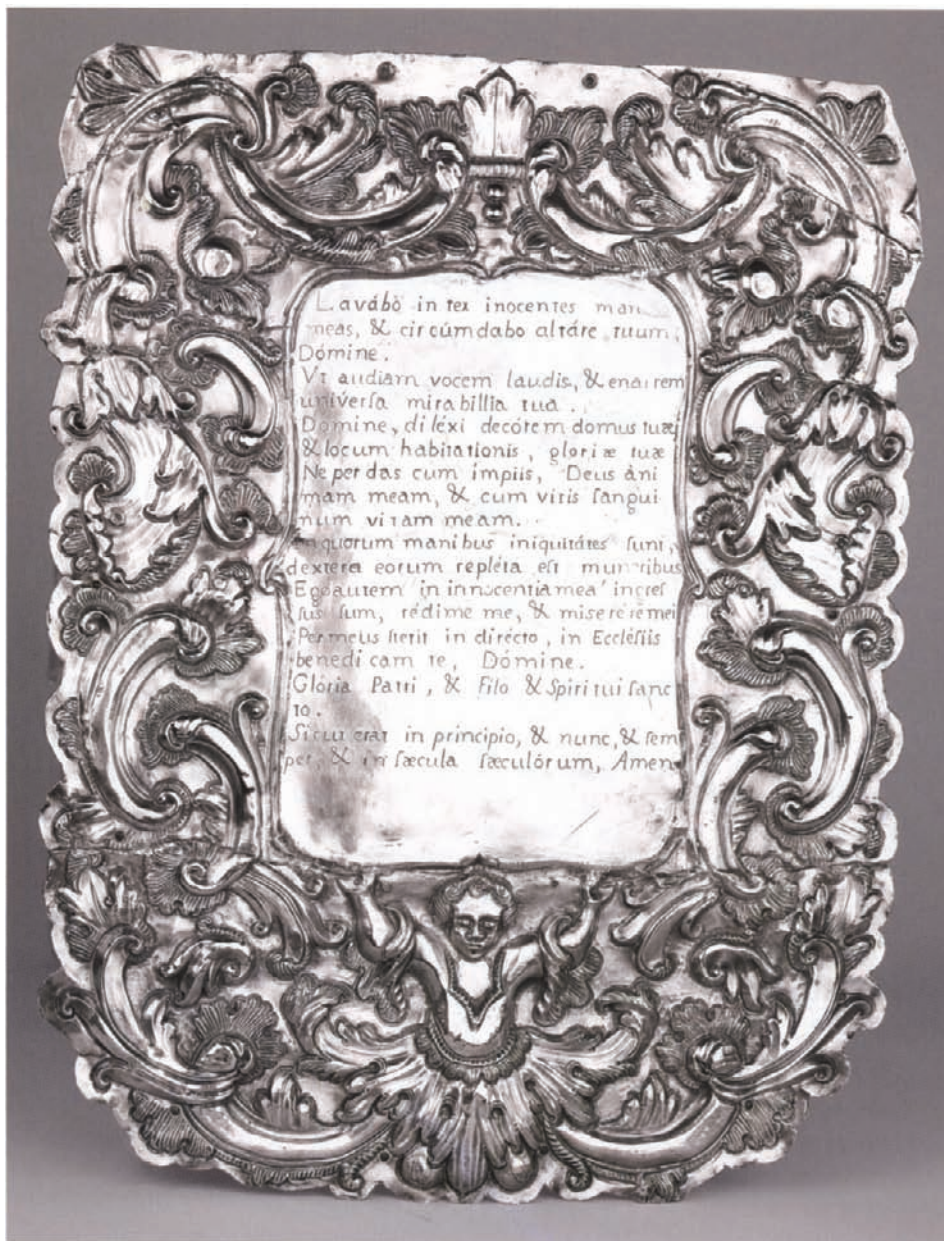 Lavábò in tex inocentes man
meas, & circúmdabo altáre tuum,
Dómine.
Vt audiam vocem laudis, & enarrem
univerſa mirabillia tua.
Domine, diléxi decórem domus tuæ
& locum habitationis, gloriæ tuæ
Ne perdas cum ímpiis, Deus áni
mam meam, & cum viris ſangui
num vitam meam.
In quorum manibus iniquitátes ſunt,
dextera eorum repléta eſt muneribus
Ego autem in innocentia mea ingreſ
ſus ſum, rédime me, & miserére mei
Pes meus ſterit in dirécto, in Eccléſiis
benedicam te, Dómine.
Glória Patri, & Filo & Spiritui ſanc
to.
Sicut erat in principio, & nunc, & ſem
per, & in ſæcula ſæculórum, Amen